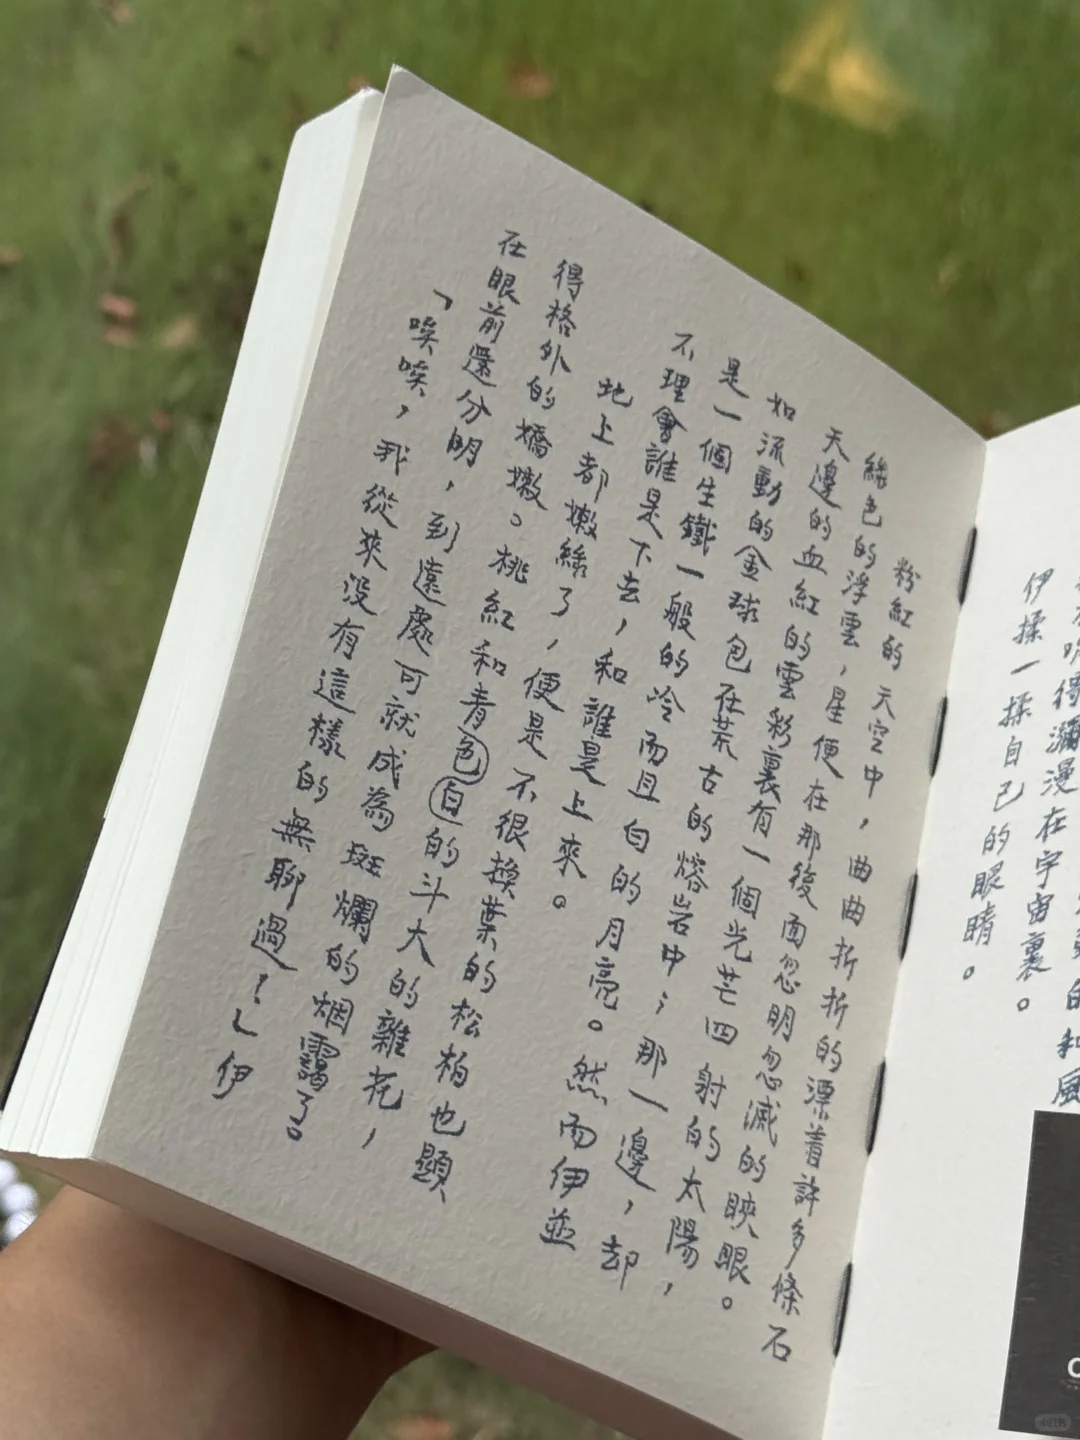 的和風
吹得瀰漫在宇宙裏。
伊揉一揉自己的眼睛。
粉紅的天空中，曲曲折折的漂着許多條石
綠色的浮雲，星便在那後面忽明忽滅的映眼。
天邊的血紅的雲彩裏有一個光芒四射的太陽，
如流動的金球包在荒古的熔岩中；那一邊，却
是一個生鐵一般的冷而且白的月亮。然而伊並
不理會誰是下去，和誰是上來。
地上都嫩綠了，便是不很換葉的松柏也顯
得格外的嬌嫩。桃紅和青色白的斗大的雜花，
在眼前還分明，到遠處可就成為斑爛的烟靄了。
「唉唉，我從來没有這樣的無聊過！」伊